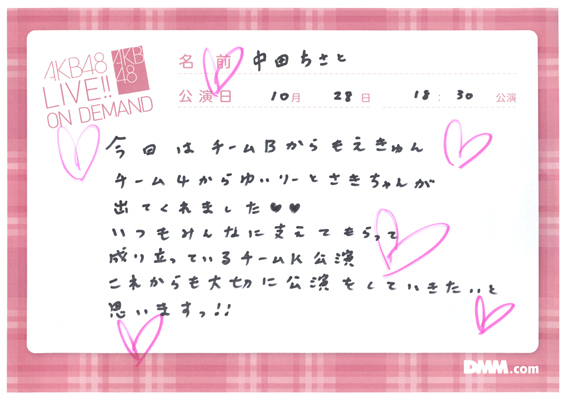 AKB48
LIVE!!
ON DEMAND
AKB
48
名前 中田ちさと
公演日 10月 28日 18:30 公演
今回はチームBからもえきゅん
チーム4からゆいりーとさきちゃんが
出てくれました♥♥
いつもみんなに支えてもらって
成り立っているチームK公演
これからも大切に公演をしていきたいと
思いますっ!!
DMM.com